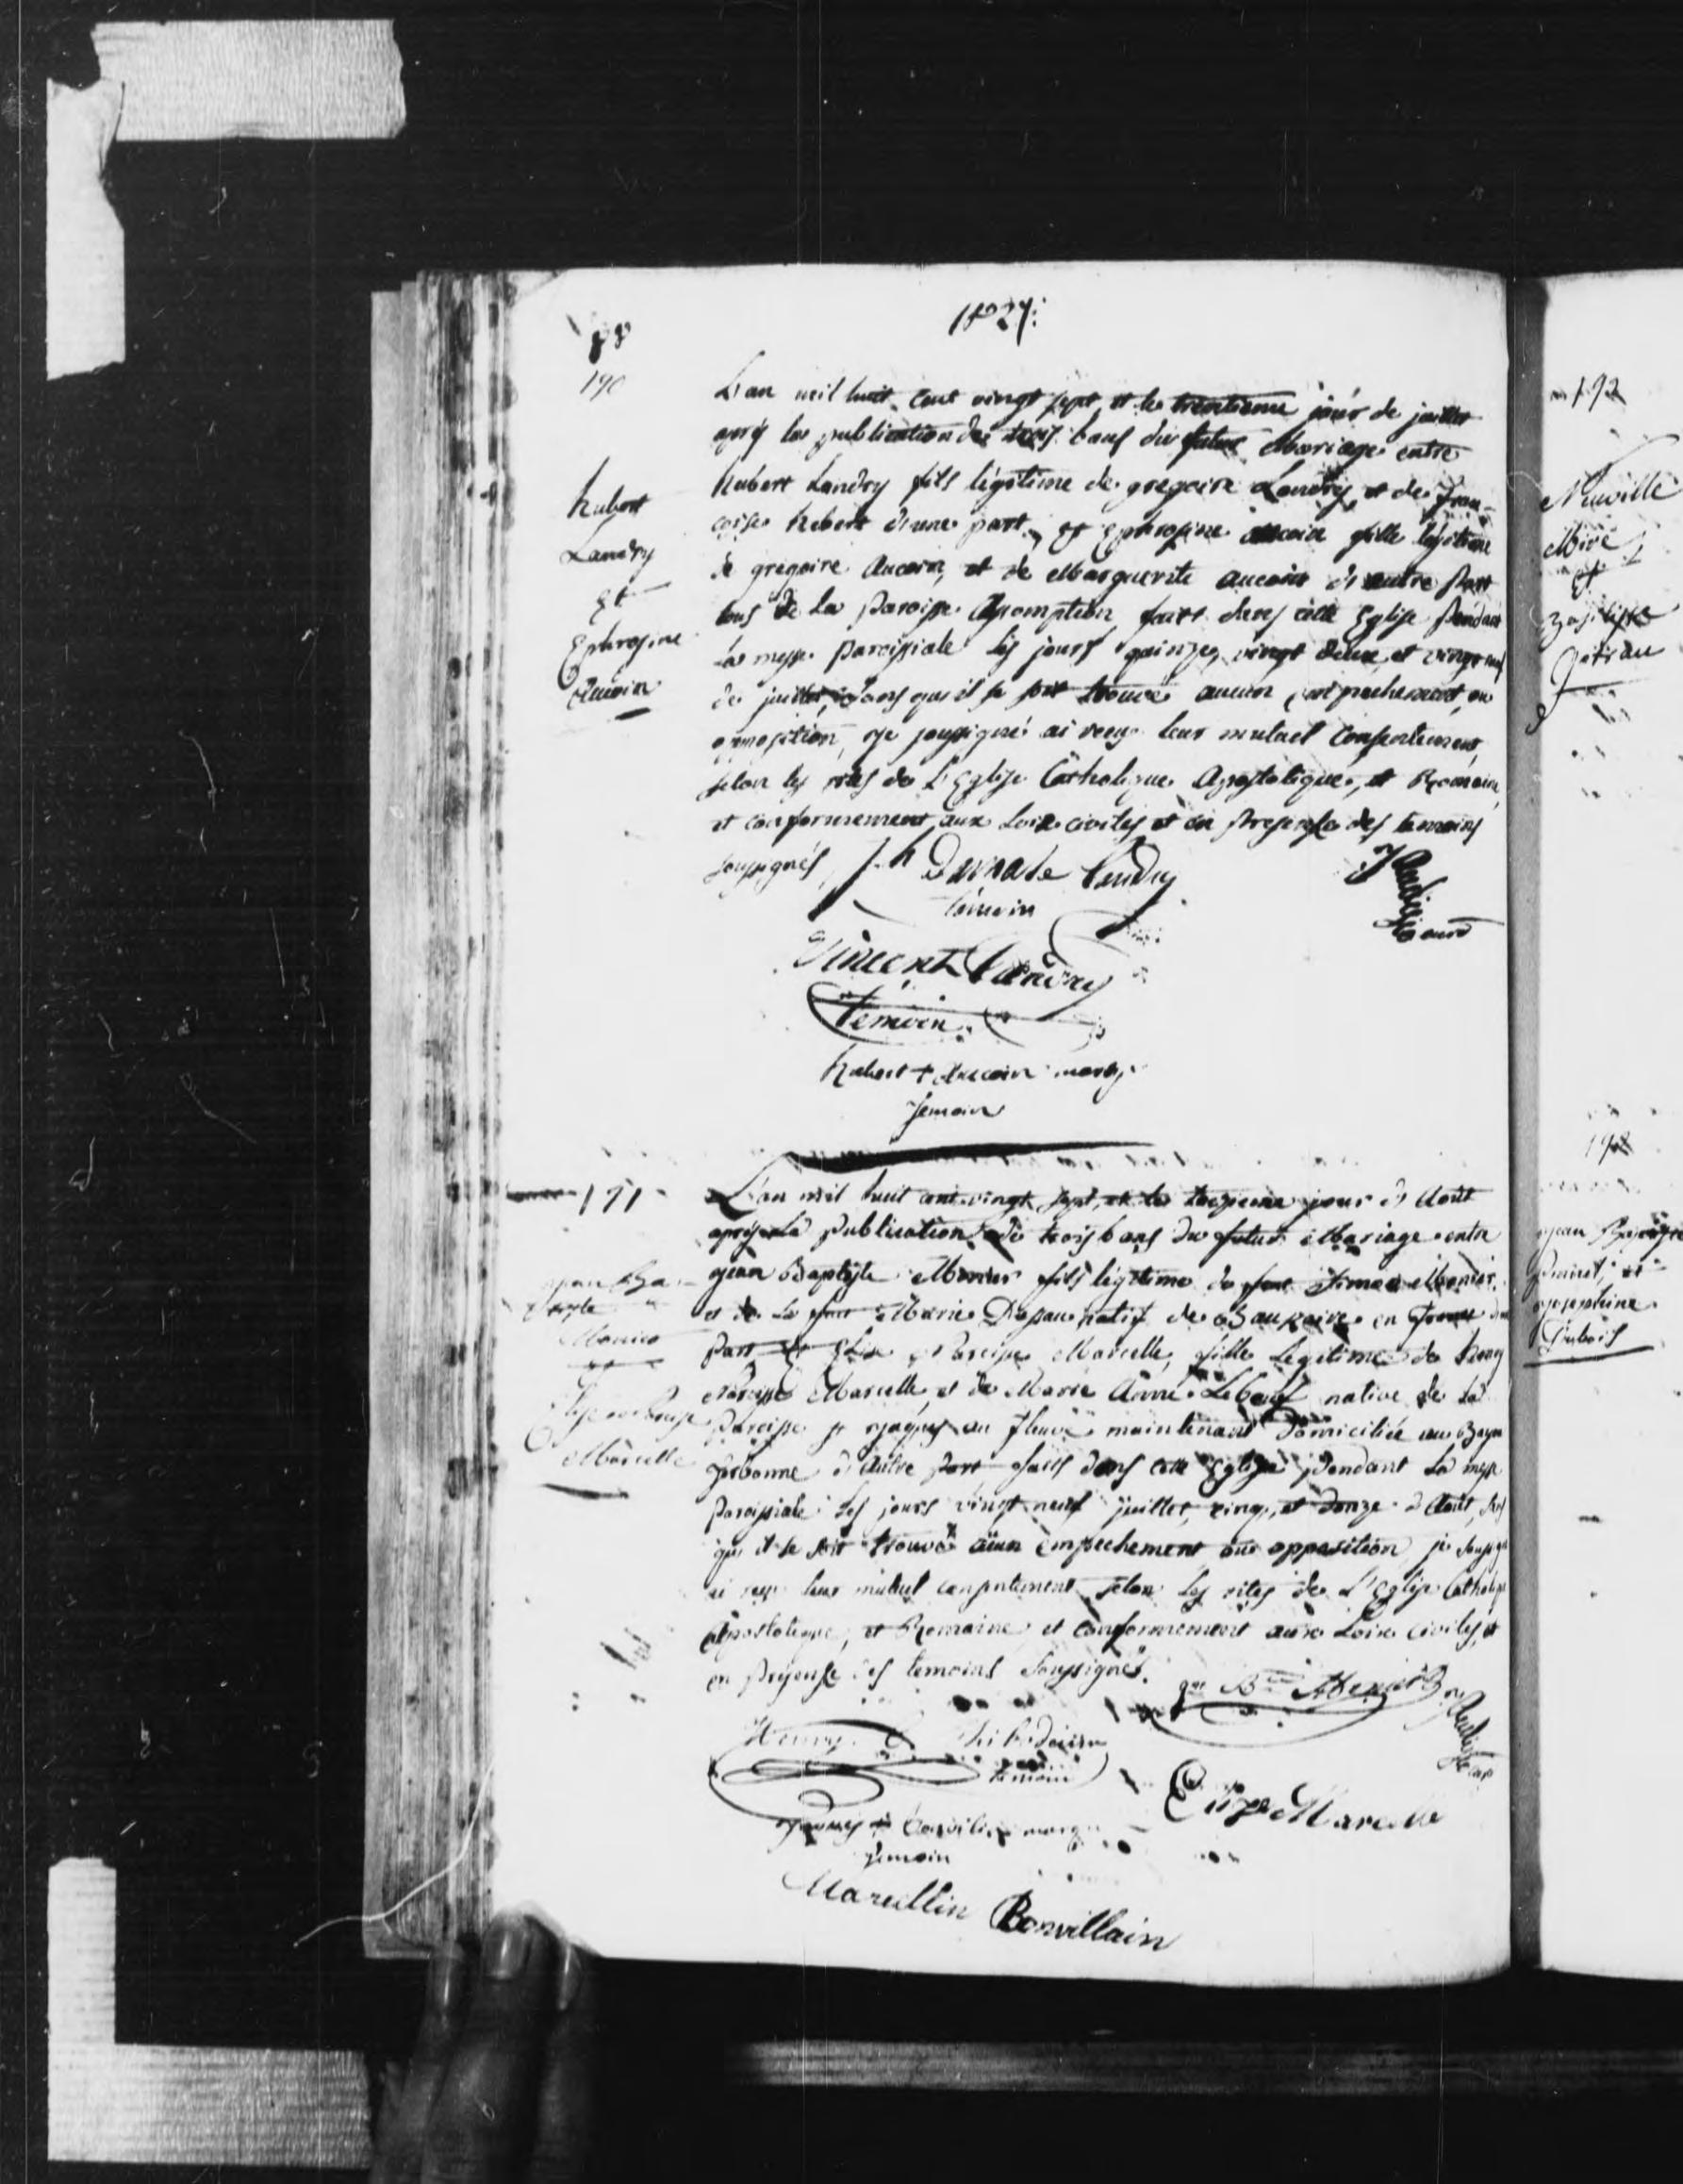 1827:
88
190
Hubert
Landry
Et
Ephrosine
Aucoin
L'an mil huit cent vingt sept et le trentieme jour de juillet
après la publication des trois bans du futur Mariage entre
hubert Landry fils légitime de gregoire Landry et de fran-
coise hebert d'une part, et Ephrosine aucoin fille legitime
de gregoire Aucoin, et de Marguerite aucoin d'autre part
tous de la paroisse Assomption fait dans cette Eglise pendant
la messe paroissiale les jours quinze, vingt deux, et vingt neuf
de juillet, sans que il se soit trouvé aucun empechement, ou
opposition, je soussigné ai reçu leur mutuel consentement
selon les rites de L'Eglise Catholique Apostolique, et Romaine,
et conformement aux Loix civiles et en presense des temoins
soussignés
Landry
témoin
Vincent Landry
temoin
hubert + Aucoin marq
temoin
191
Jean Bap-
tiste
Monier
et
Marcelle
L'an mil huit cent vingt sept, et le treizieme jour d'Août
après la publication de trois bans du futur Mariage entre
jean Baptiste Monier fils légitime de feu Monier
et de la feue Marie natif de Baupaire en
part et Elise Narcisse Marcelle, fille Legitime de henry
Narcisse Marcelle, et de Marie Anne Lebeuf native de la
Paroisse st jaques au fleuve maintenant domiciliée au Bayu
Terbonne d'autre part faits dans cette Eglise pendant la messe
paroissiale les jours vingt neuf juillet, cinq, et douze d'Août, sans
que il se soit trouvé aucun empechement ou opposition je soussigné
ai reçu leur mutuel consentement selon les rites de L'Eglise Catholique
Apostolique, et Romaine et conformement aux Loix civiles, et
en presense des temoins soussignés.
jn Bte Monier
Henry S. Thibodeaux
temoin
Elize Marcelle
marq
temoin
Marcellin Bonvillain
192
Neuville
Miré
et
192
jean
et
josephine
Dubois